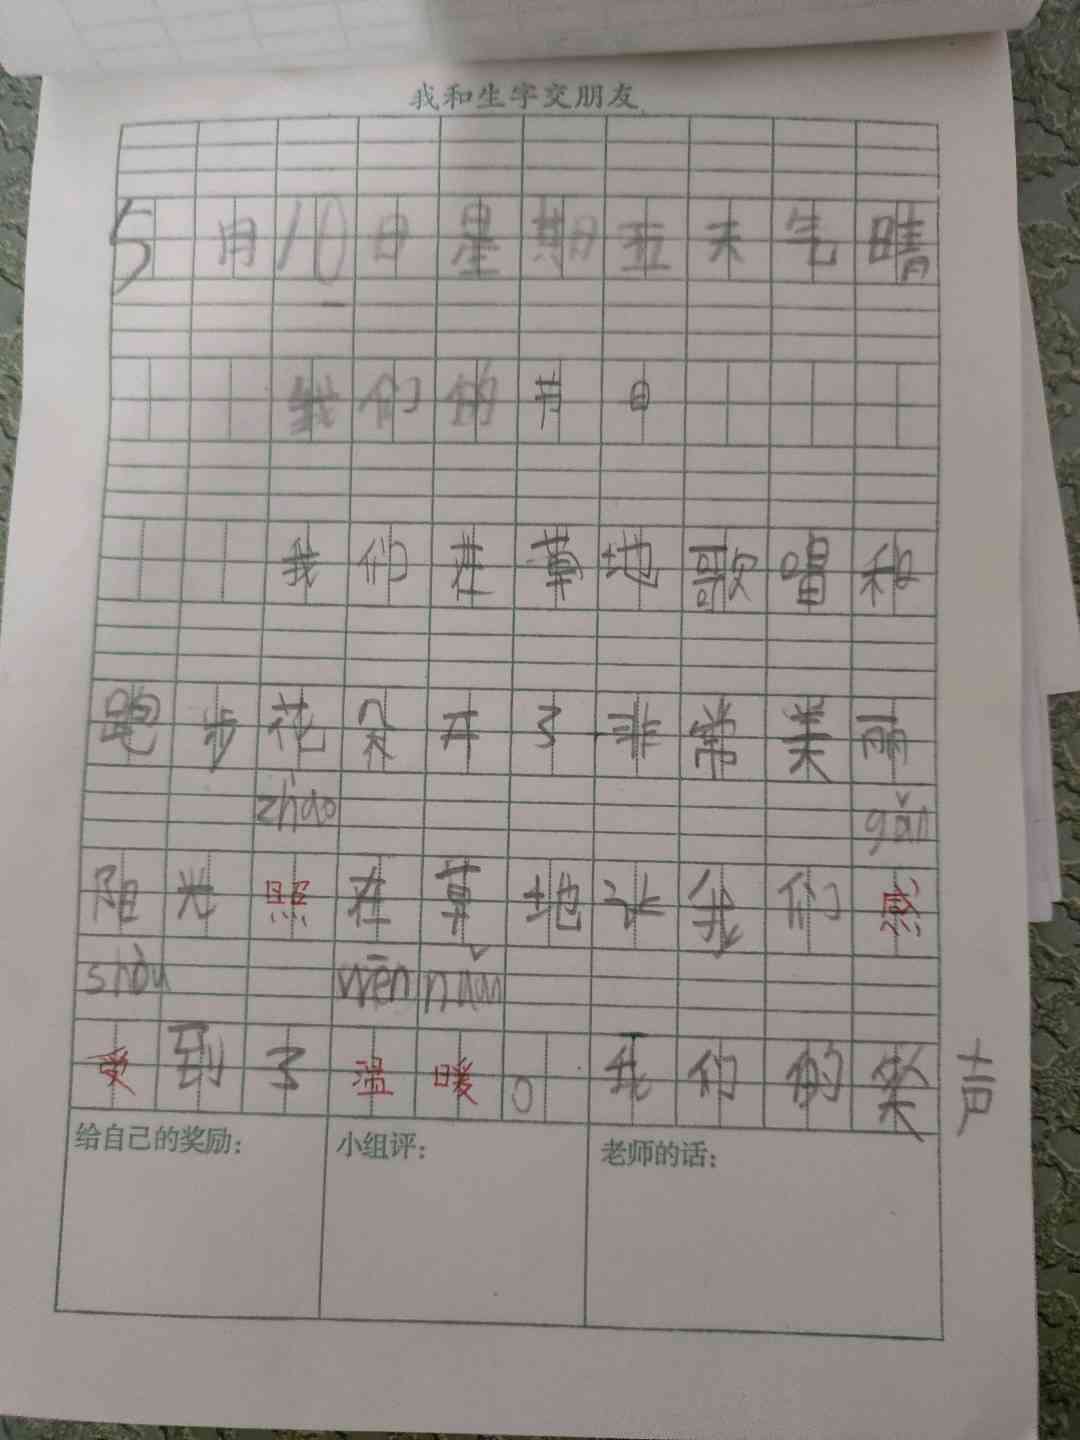 我和生字交朋友
5月10日星期五天气晴
我们的节日
我们在草地歌唱和
跑步花朵开了非常美丽
zhào gǎn
阳光照在草地让我们感
shòu wēn nuǎn
受到了温暖。我们的笑声
给自己的奖励： 小组评： 老师的话：